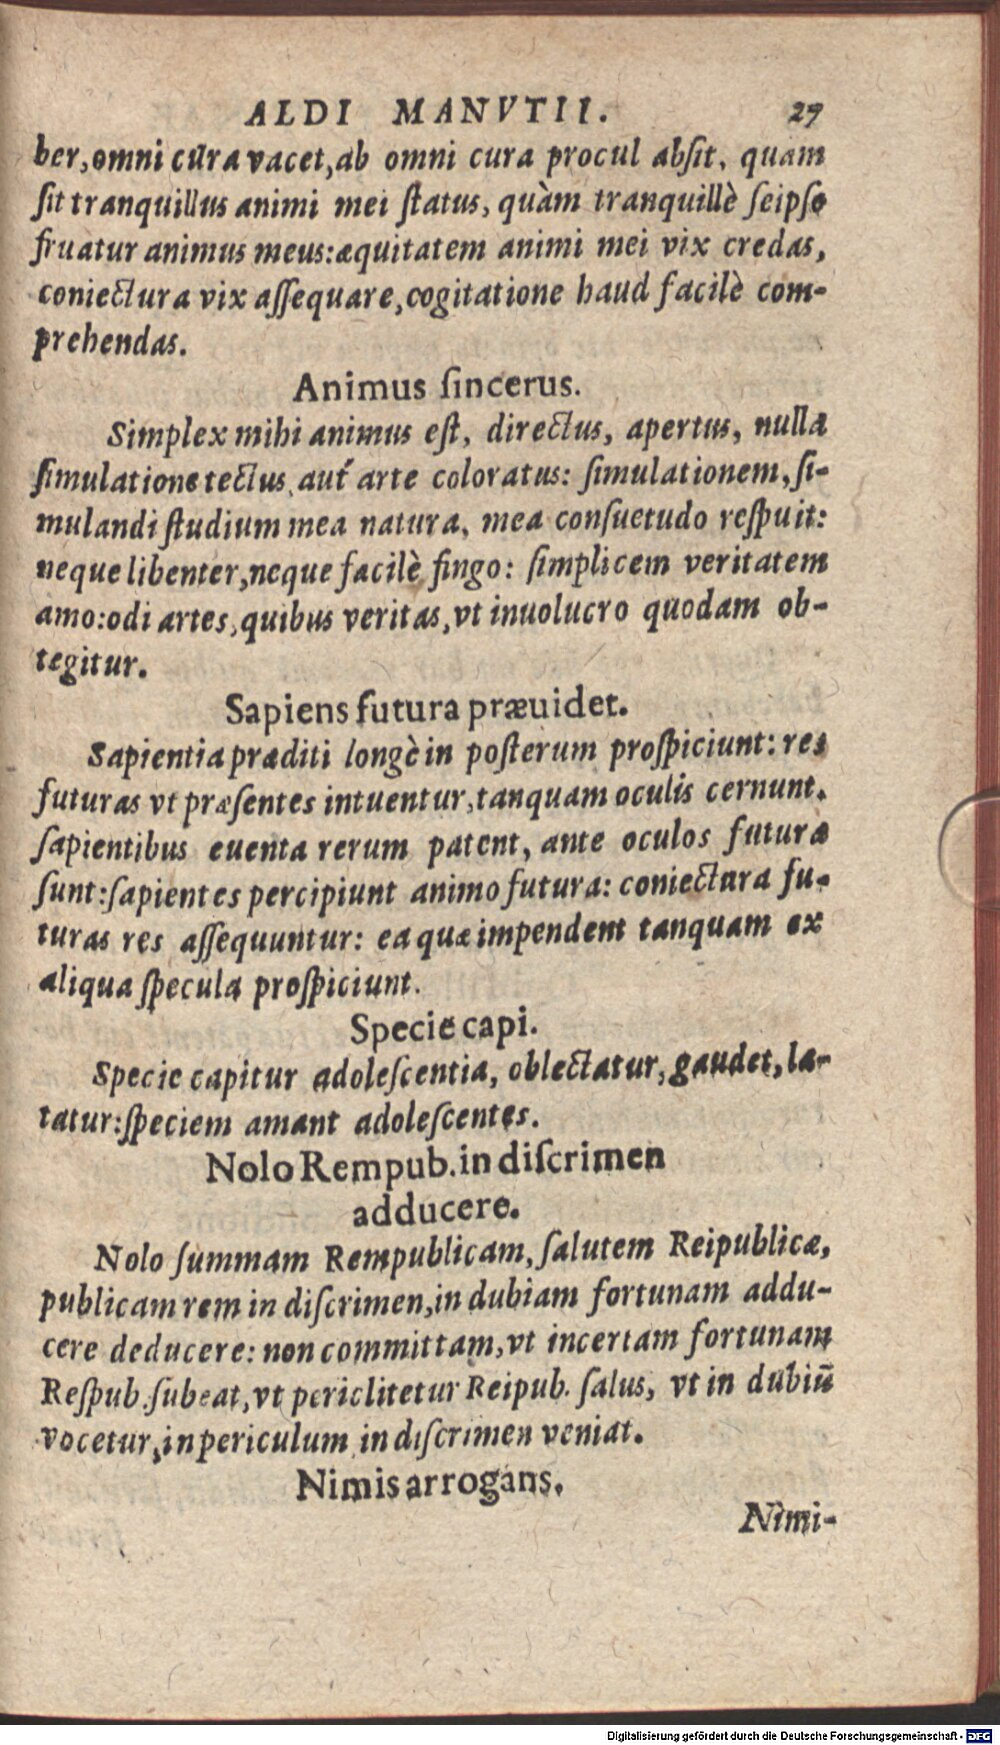 ALDI MANVTII. 27
ber, omni cura vacet, ab omni cura procul absit, quam
sit tranquillus animi mei status, quàm tranquillè seipso
fruatur animus meus: æquitatem animi mei vix credas,
coniectura vix assequare, cogitatione haud facilè com-
prehendas.
Animus sincerus.
Simplex mihi animus est, directus, apertus, nulla
simulatione tectus, aut arte coloratus: simulationem, si-
mulandi studium mea natura, mea consuetudo respuit:
neque libenter, neque facilè fingo: simplicem veritatem
amo: odi artes, quibus veritas, vt inuolucro quodam ob-
tegitur.
Sapiens futura præuidet.
Sapientia præditi longè in posterum prospiciunt: res
futuras vt præsentes intuentur, tanquam oculis cernunt.
sapientibus euenta rerum patent, ante oculos futura
sunt: sapientes percipiunt animo futura: coniectura fu-
turas res assequuntur: ea quæ impendent tanquam ex
aliqua specula prospiciunt.
Specie capi.
Specie capitur adolescentia, oblectatur, gaudet, læ-
tatur: speciem amant adolescentes.
Nolo Rempub. in discrimen
adducere.
Nolo summam Rempublicam, salutem Reipublicæ,
publicam rem in discrimen, in dubiam fortunam addu-
cere deducere: non committam, vt incertam fortunam
Respub. subeat, vt periclitetur Reipub. salus, vt in dubiũ
vocetur, in periculum in discrimen veniat.
Nimis arrogans.
Nimi-
Digitalisierung gefördert durch die Deutsche Forschungsgemeinschaft - DFG